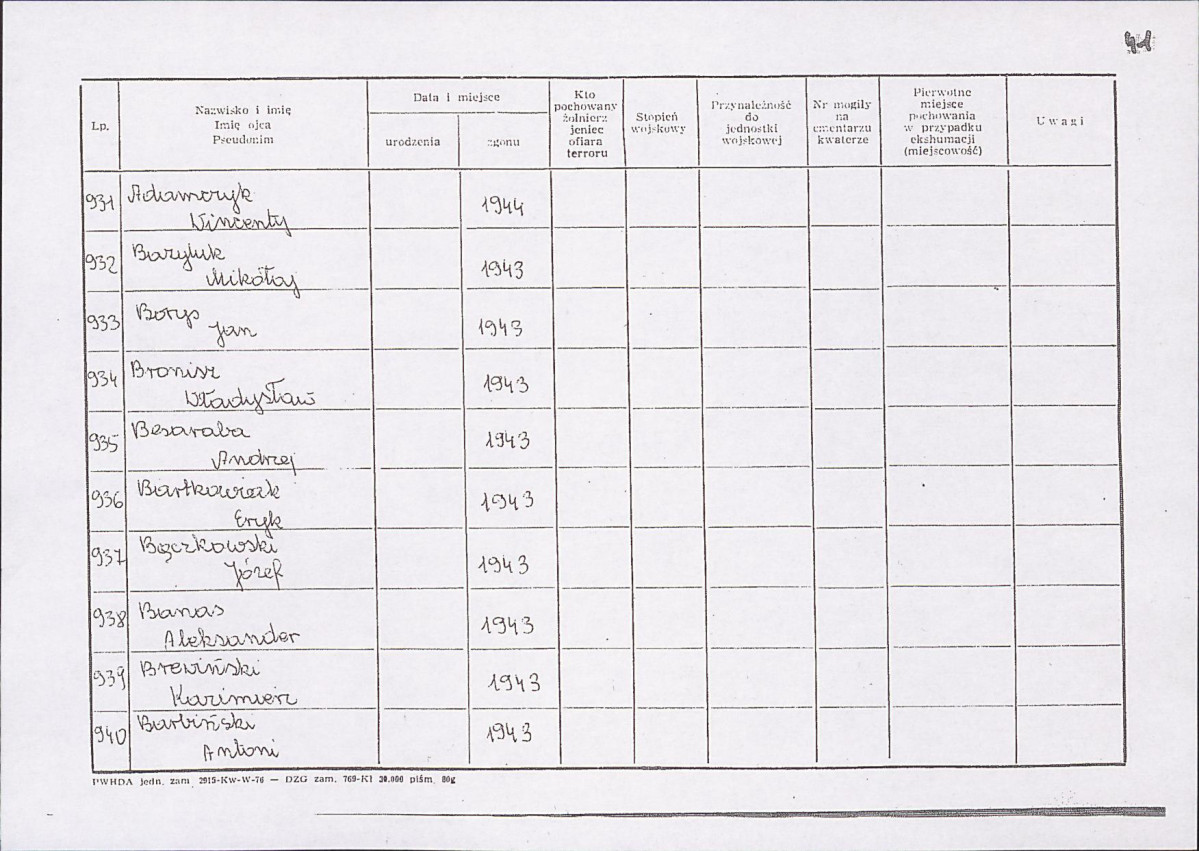 Lp.
Nazwisko i imię
Imię ojca
Pseudonim
Data i miejsce
urodzenia
zgonu
Kto
pochowany
żołnierz
jeniec
ofiara
terroru
Stopień
wojskowy
Przynależność
do
jednostki
wojskowej
Nr mogiły
na
cmentarzu
kwaterze
Pierwotne
miejsce
pochowania
w przypadku
ekshumacji
(miejscowość)
Uwagi
931 Adamczyk
Wincenty 1944
932 Baryluk
Mikołaj 1943
933 Borys
Jan 1943
934 Bronisz
Władysław 1943
935 Besaraba
Andrzej 1943
936 Bartkowiak
Eryk 1943
937 Bączkowski
Józef 1943
938 Banas
Aleksander 1943
939 Brewiński
Kazimierz 1943
940 Barbiński
Antoni 1943
PWHDA jedn. zam. 2915-Kw-W-76 — DZG zam. 769-K1 30.000 piśm. 80g